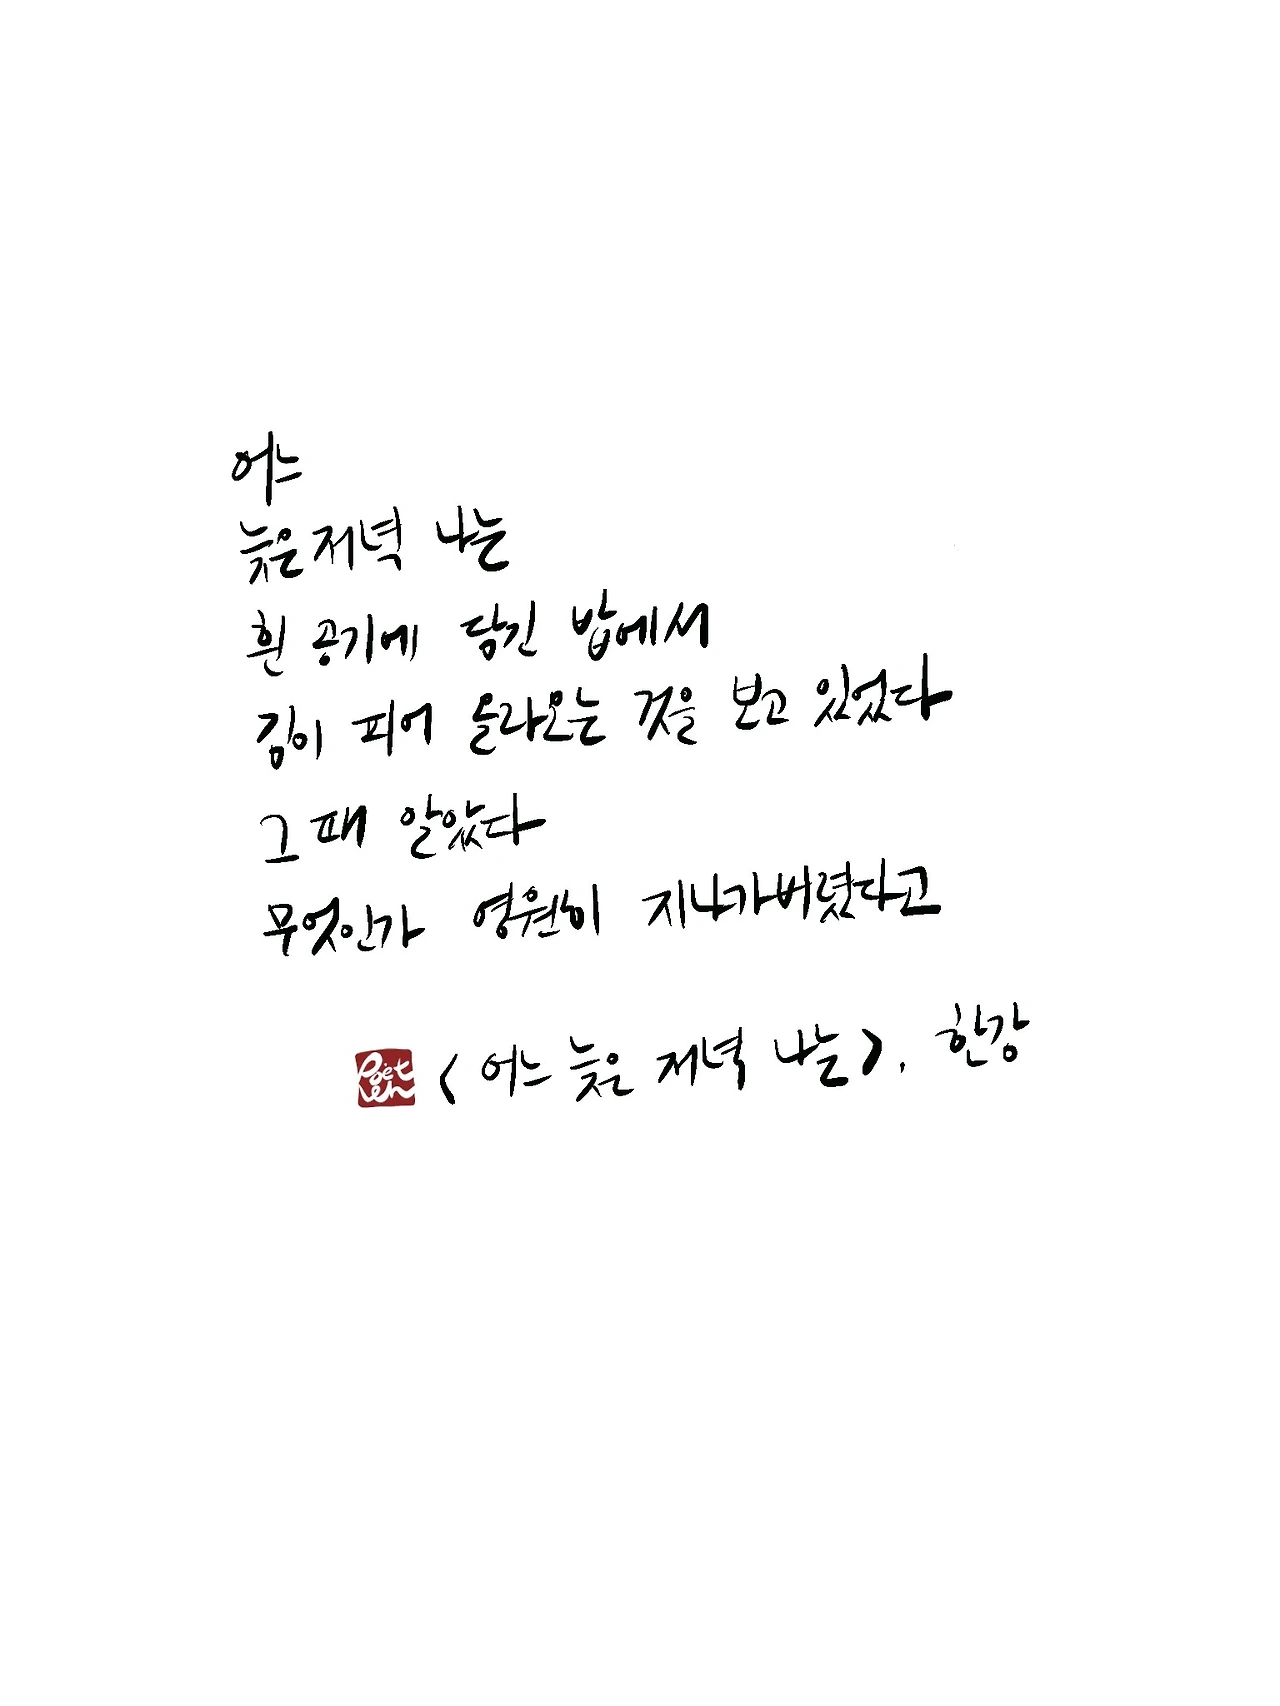 어느
늦은 저녁 나는
흰 공기에 담긴 밥에서
김이 피어 올라오는 것을 보고 있었다
그 때 알았다
무엇인가 영원히 지나가버렸다고
<어느 늦은 저녁 나는>, 한강
Poet